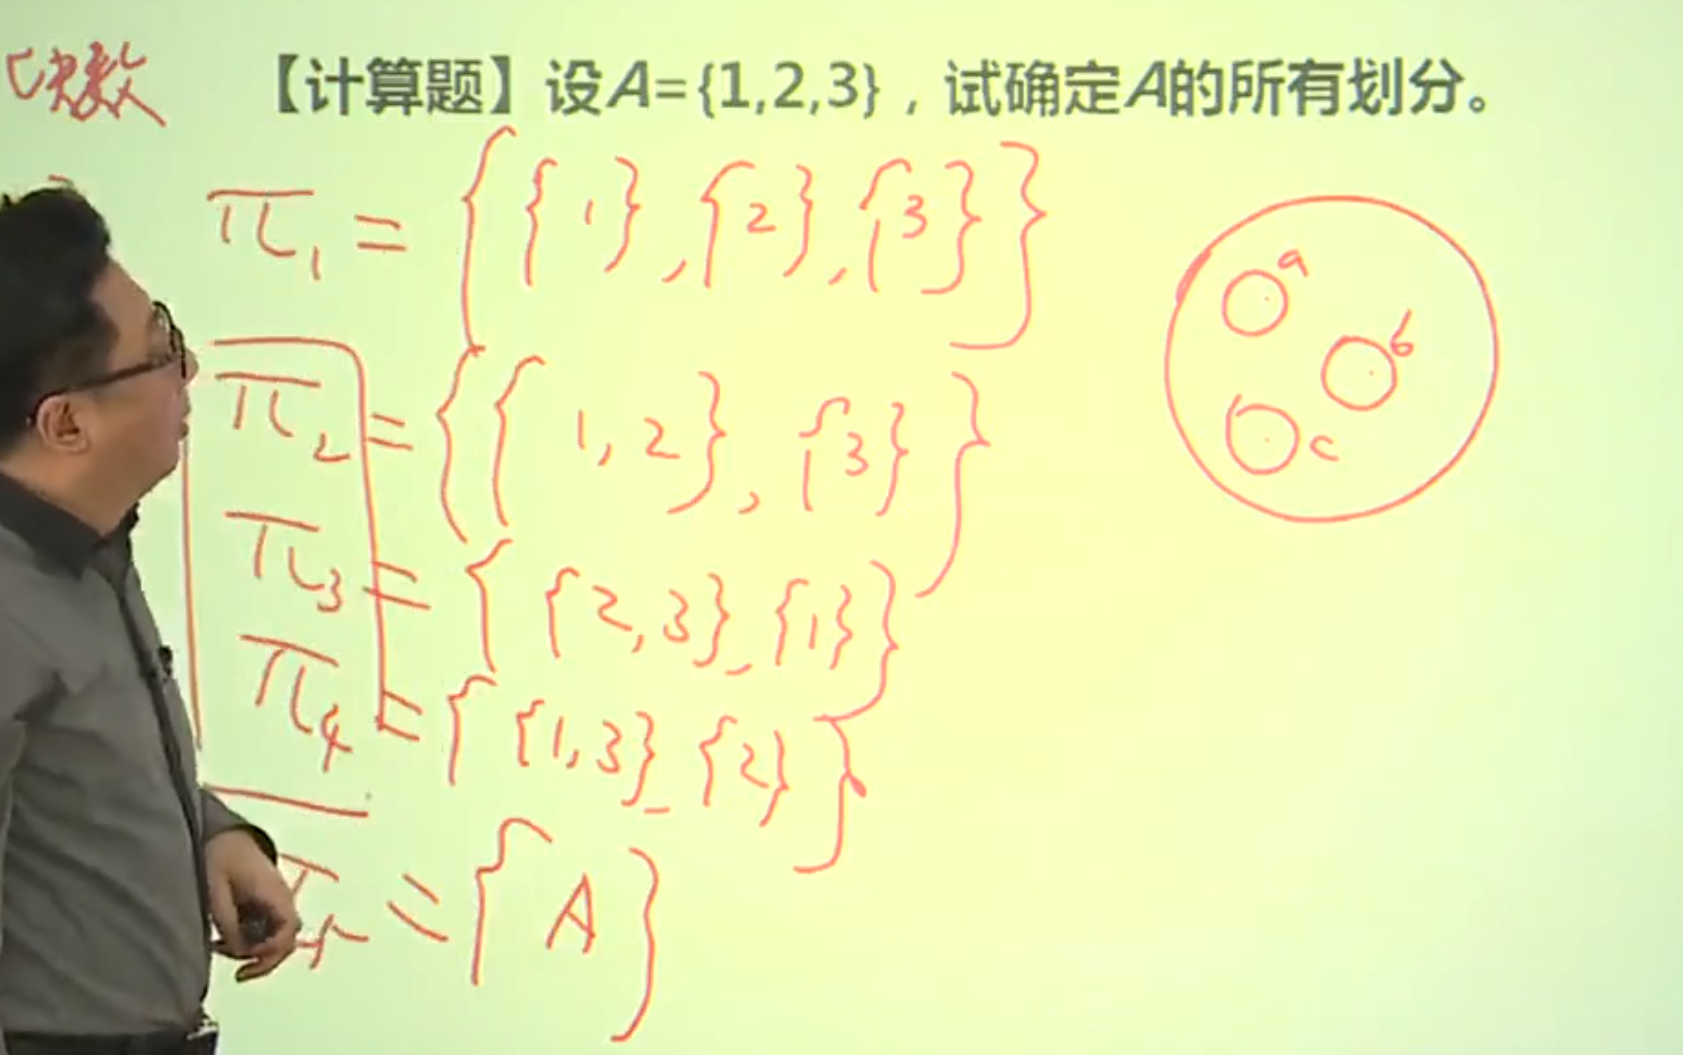 块数
【计算题】设A={1,2,3}，试确定A的所有划分。
π₁ = {{1},{2},{3}}
π₂ = {{1,2},{3}}
π₃ = {{2,3},{1}}
π₄ = {{1,3},{2}}
= {A}
a
b
c